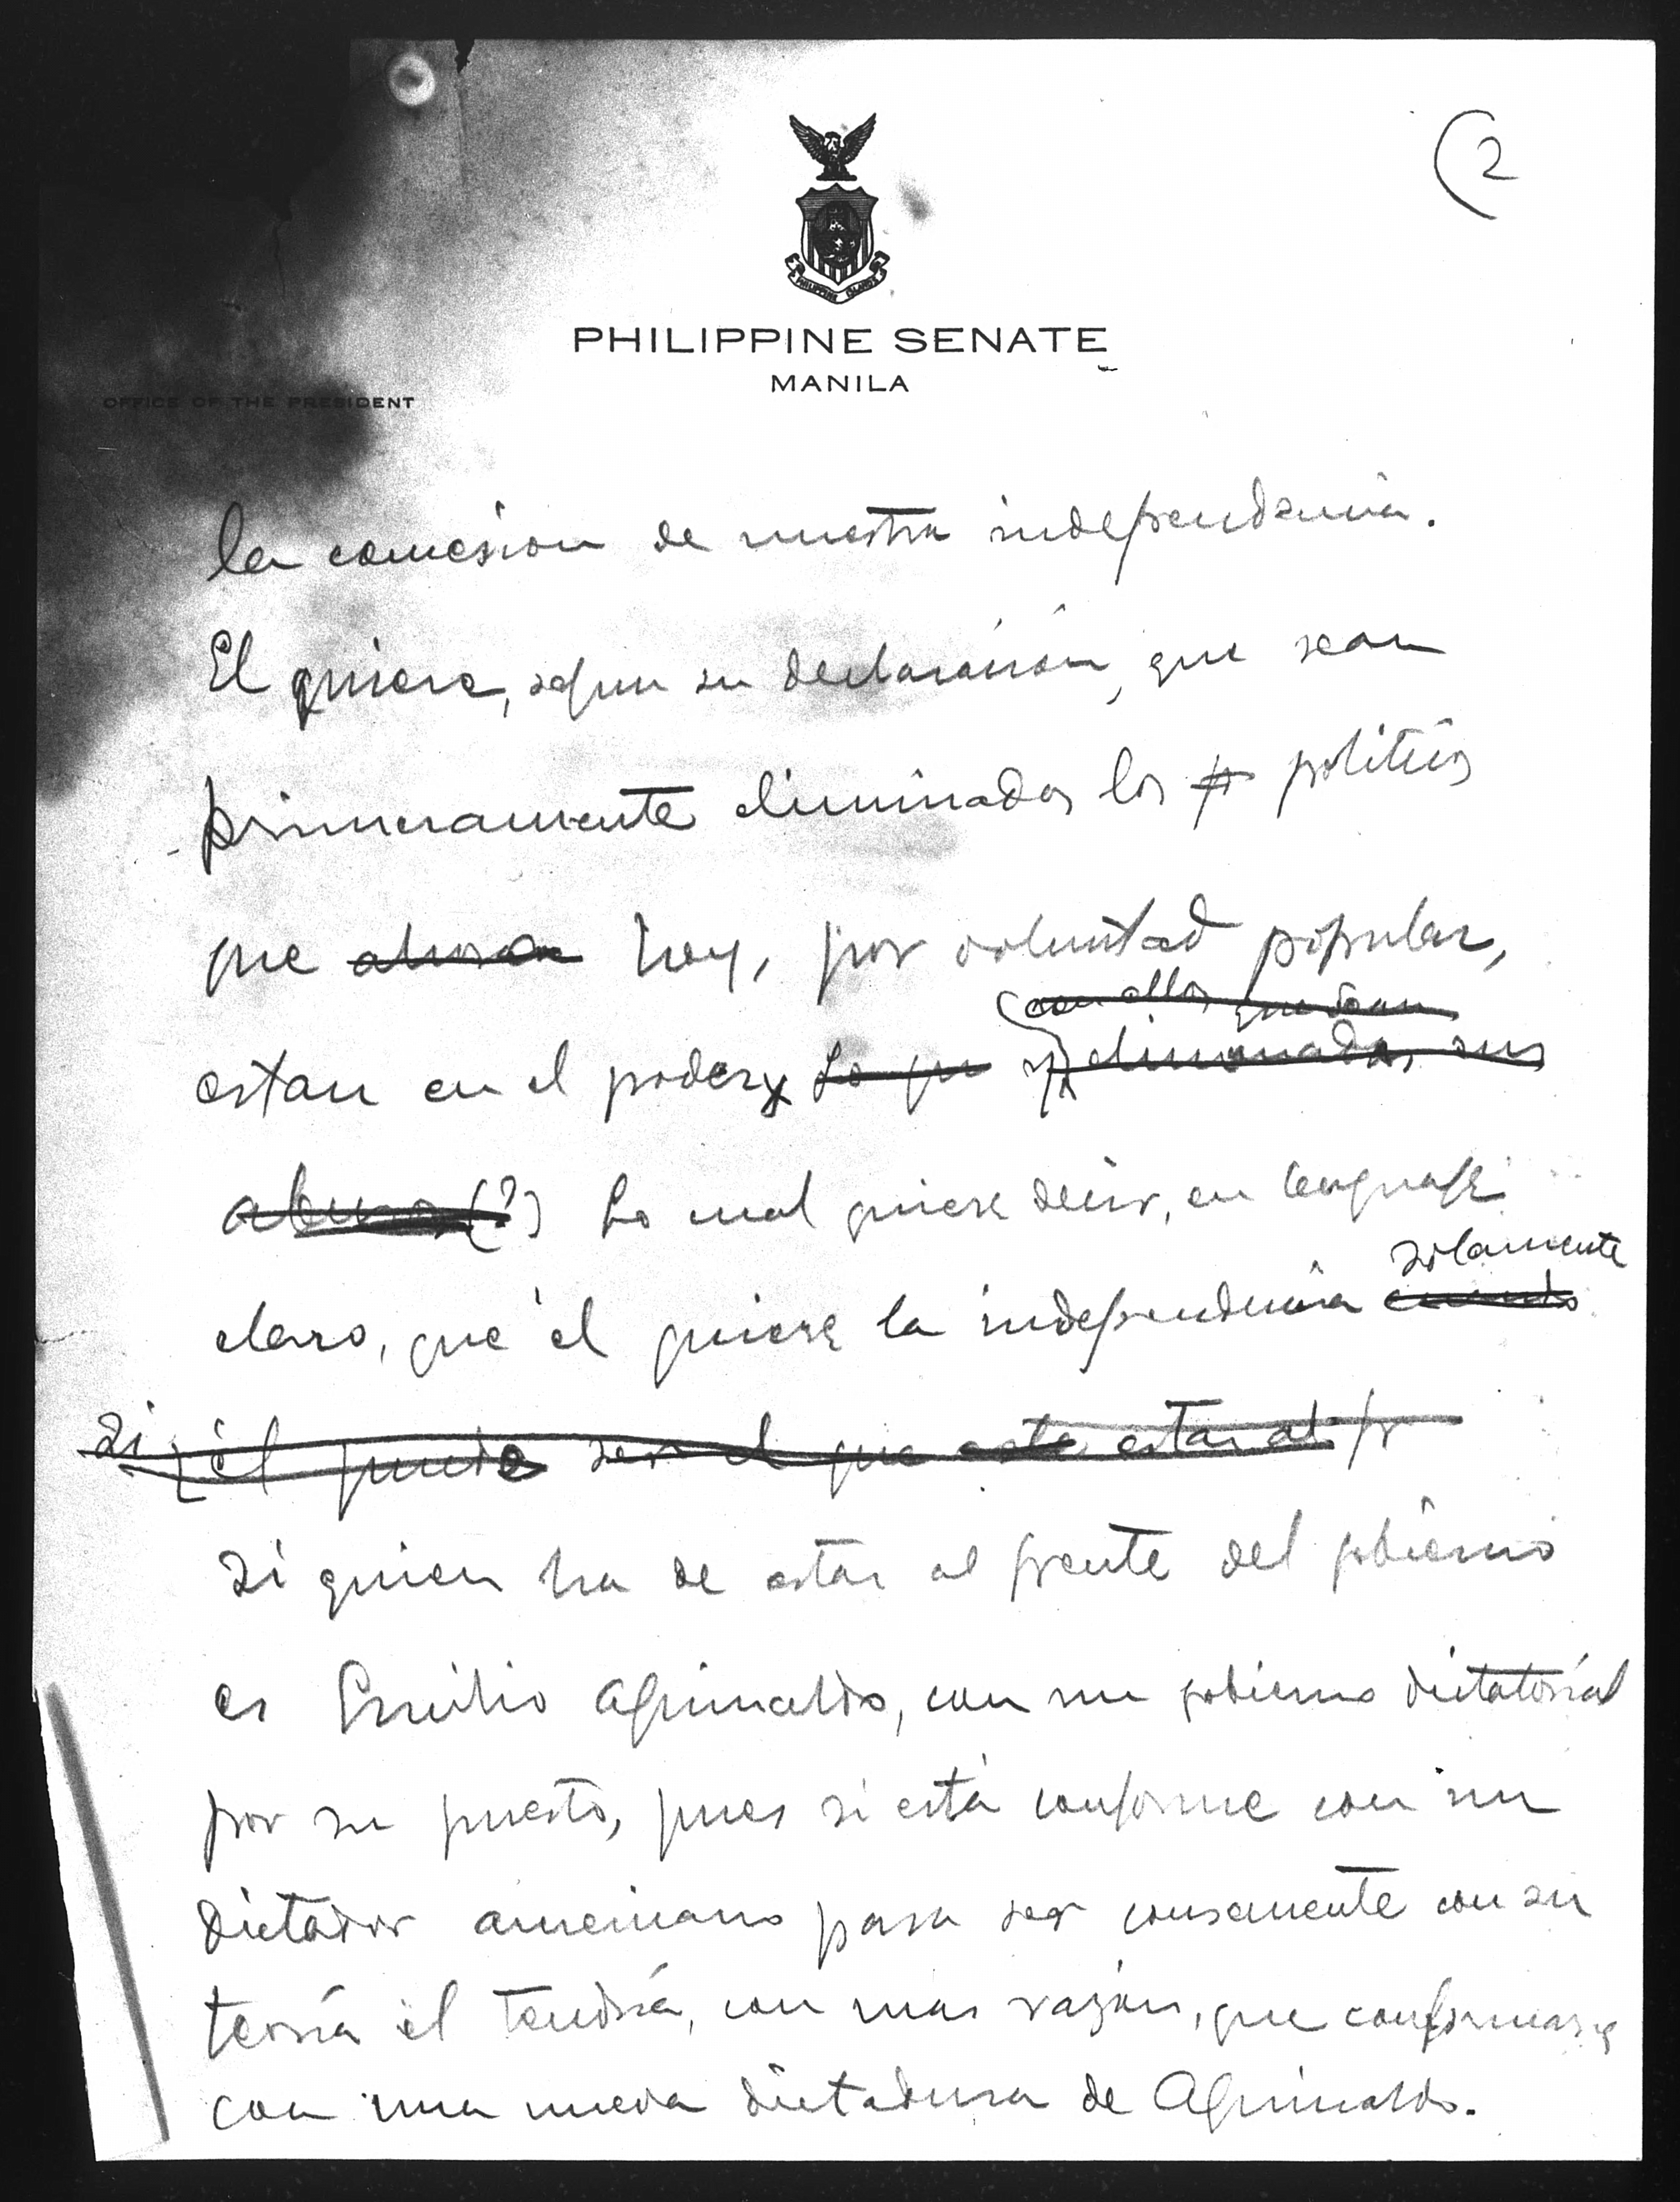 (2
PHILIPPINE ISLANDS
PHILIPPINE SENATE
MANILA
OFFICE OF THE PRESIDENT
la concesion de nuestra independencia.
El quiere, segun su declaración, que sean
primeramente eliminados los politicos
que ahora hoy, por voluntad popular,
con ellos quedan
estan en el poder Lo que eliminados sus
abusos (?) Lo cual quiere decir, en lenguaje
solamente
claro, que él quiere la independencia cuando
si él puede ser el que esta estar al fr
si quien ha de estar al frente del gobierno
es Emilio Aguinaldo, con un gobierno dictatorial
por su puesto, pues si está conforme con un
dictador americano para ser consecuente con su
teoría él tendría, con mas razón, que conformarse
con una nueva dictadura de Aguinaldo.